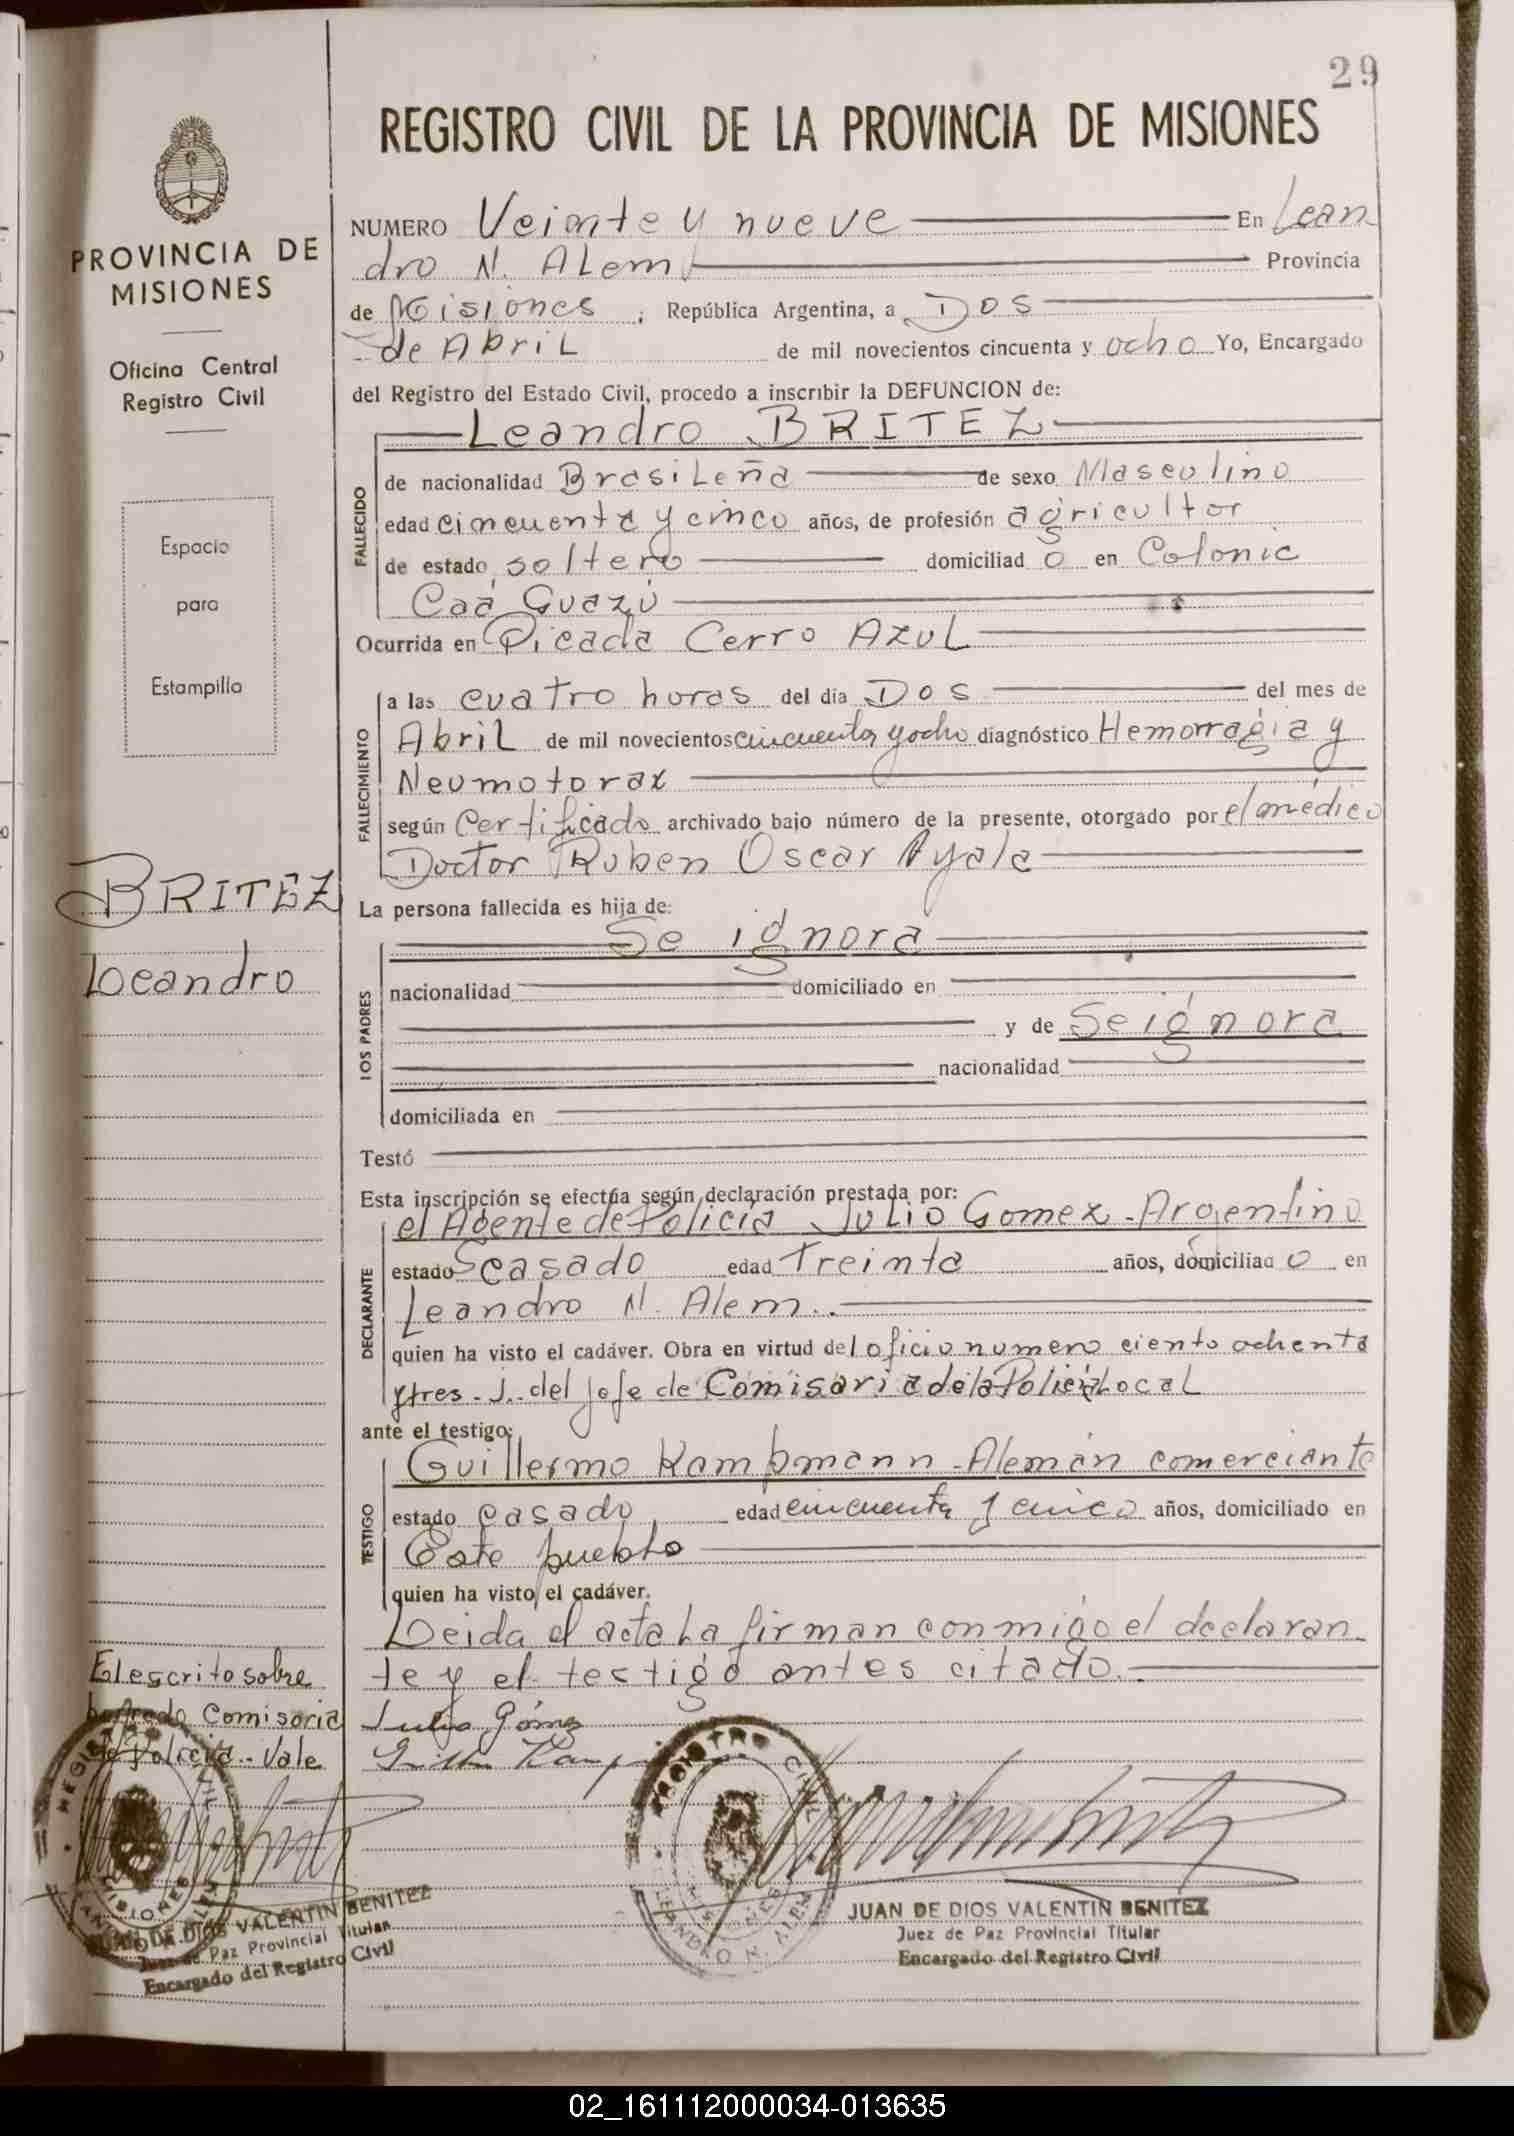 29
REGISTRO CIVIL DE LA PROVINCIA DE MISIONES
PROVINCIA DE
MISIONES
Oficina Central
Registro Civil
Espacio
para
Estampilla
BRITEZ
Leandro
NUMERO Veinte y nueve En Lean
dro N. Alem Provincia
de Misiones ; República Argentina, a Dos
de Abril de mil novecientos cincuenta y ocho Yo, Encargado
del Registro del Estado Civil, procedo a inscribir la DEFUNCION de:
Leandro BRITEZ
FALLECIDO
de nacionalidad Brasileña de sexo Masculino
edad cincuenta y cinco años, de profesión agricultor
de estado soltero domiciliad o en Colonia
Caá Guazú
Ocurrida en Picada Cerro Azul
FALLECIMIENTO
a las cuatro horas del día Dos del mes de
Abril de mil novecientos cincuenta y ocho diagnóstico Hemorragia y
Neumotorax
según Certificado archivado bajo número de la presente, otorgado por el médico
Doctor Ruben Oscar Ayala
La persona fallecida es hija de:
Se ignora
LOS PADRES
nacionalidad domiciliado en
y de Se ignora
nacionalidad
domiciliada en
Testó
Esta inscripción se efectúa según declaración prestada por:
el Agente de Policía Julio Gomez - Argentino
DECLARANTE
estado casado edad Treinta años, domiciliad o en
Leandro N. Alem.
quien ha visto el cadáver. Obra en virtud del oficio numero ciento ochenta
y tres - J. del Jefe de Comisaria de la Policia Local
ante el testigo:
Guillermo Kampmann - Alemán comerciante
TESTIGO
estado casado edad cincuenta y cinco años, domiciliado en
Este pueblo
quien ha visto el cadáver.
Leida el acta la firman conmigo el declaran
te y el testigo antes citado.
Julio Gómez
El escrito sobre
borrado Comisaria
de Policia - Vale
REGISTRO CIVIL
MISIONES
LEANDRO N. ALEM
JUAN DE DIOS VALENTIN BENITEZ
Juez de Paz Provincial Titular
Encargado del Registro Civil
REGISTRO CIVIL
MISIONES
LEANDRO N. ALEM
JUAN DE DIOS VALENTIN BENITEZ
Juez de Paz Provincial Titular
Encargado del Registro Civil
02_161112000034-013635